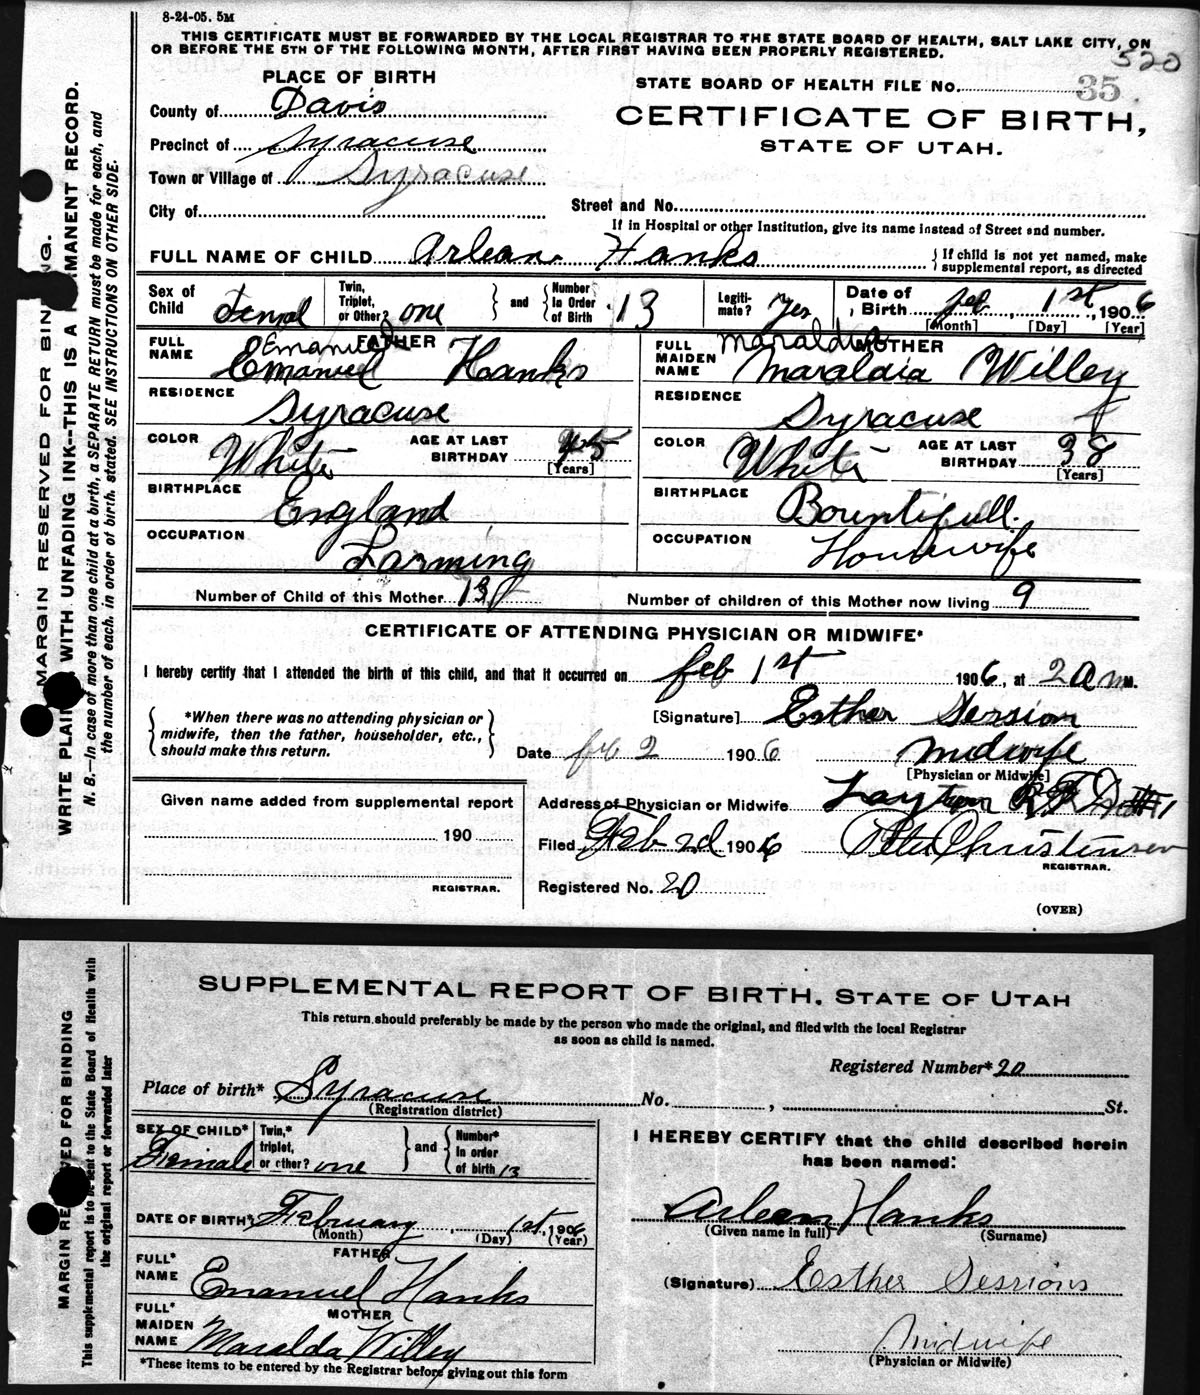 8-24-05. 5M
THIS CERTIFICATE MUST BE FORWARDED BY THE LOCAL REGISTRAR TO THE STATE BOARD OF HEALTH, SALT LAKE CITY, ON
OR BEFORE THE 5TH OF THE FOLLOWING MONTH, AFTER FIRST HAVING BEEN PROPERLY REGISTERED.
520
PLACE OF BIRTH
STATE BOARD OF HEALTH FILE NO. 35
County of Davis
CERTIFICATE OF BIRTH,
Precinct of Syracuse
STATE OF UTAH.
Town or Village of Syracuse
City of
Street and No.
If in Hospital or other Institution, give its name instead of Street and number.
FULL NAME OF CHILD Arlean Hanks { If child is not yet named, make supplemental report, as directed
Sex of Child Femal Twin, Triplet, or Other? one } and { Number In Order of Birth 13 Legiti-mate? Yes Date of Birth Feb, 1st, 1906
[Month] [Day] [Year]
FATHER
FULL NAME Emanuel Emanuel Hanks
RESIDENCE Syracuse
COLOR White AGE AT LAST BIRTHDAY 45 [Years]
BIRTHPLACE England
OCCUPATION Farming
MOTHER
FULL MAIDEN NAME Maraldia Willey
RESIDENCE Syracuse
COLOR White AGE AT LAST BIRTHDAY 38 [Years]
BIRTHPLACE Bountifull.
OCCUPATION Housewife
Number of Child of this Mother 13 Number of children of this Mother now living 9
CERTIFICATE OF ATTENDING PHYSICIAN OR MIDWIFE*
I hereby certify that I attended the birth of this child, and that it occurred on feb 1st 1906, at 2 a m M.
{ *When there was no attending physician or midwife, then the father, householder, etc., should make this return. }
[Signature] Esther Session
Date feb 2 1906 Midwife
[Physician or Midwife]
Given name added from supplemental report
190
REGISTRAR.
Address of Physician or Midwife Layton R F D #1
Filed Feb 2d 1906 Peter Christensen
REGISTRAR.
Registered No. 20
(OVER)
MARGIN RESERVED FOR BINDING.
WRITE PLAINLY WITH UNFADING INK--THIS IS A PERMANENT RECORD.
N. B.—In case of more than one child at a birth, a SEPARATE RETURN must be made for each, and
the number of each, in order of birth, stated. SEE INSTRUCTIONS ON OTHER SIDE.
SUPPLEMENTAL REPORT OF BIRTH, STATE OF UTAH
This return should preferably be made by the person who made the original, and filed with the local Registrar
as soon as child is named.
Registered Number* 20
Place of birth* Syracuse No. , St.
(Registration district)
SEX OF CHILD* Female Twin,* triplet, or other? one } and { Number* In order of birth 13
DATE OF BIRTH* February, 1st, 1906
(Month) (Day) (Year)
FATHER
FULL* NAME Emanuel Hanks
MOTHER
FULL* MAIDEN NAME Maralda Willey
*These items to be entered by the Registrar before giving out this form
I HEREBY CERTIFY that the child described herein
has been named:
Arleen Hanks
(Given name in full) (Surname)
(Signature) Esther Sessions
Midwife
(Physician or Midwife)
MARGIN RESERVED FOR BINDING
This supplemental report is to be sent to the State Board of Health with
the original report or forwarded later